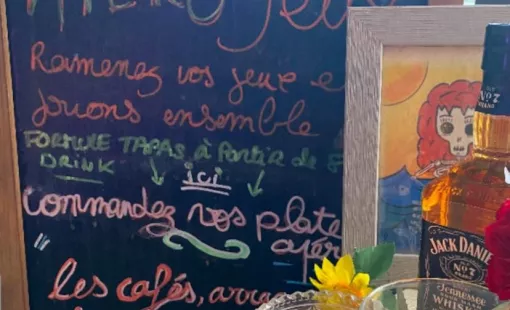 Ramenez vos jeux e
jouons ensemble
FORMULE TAPAS à Partir de 8
DRINK
ici
commandez vos plate
apér
les cafés, arra
No.7
JACK DANIE
No.7
Tennessee
WHIS